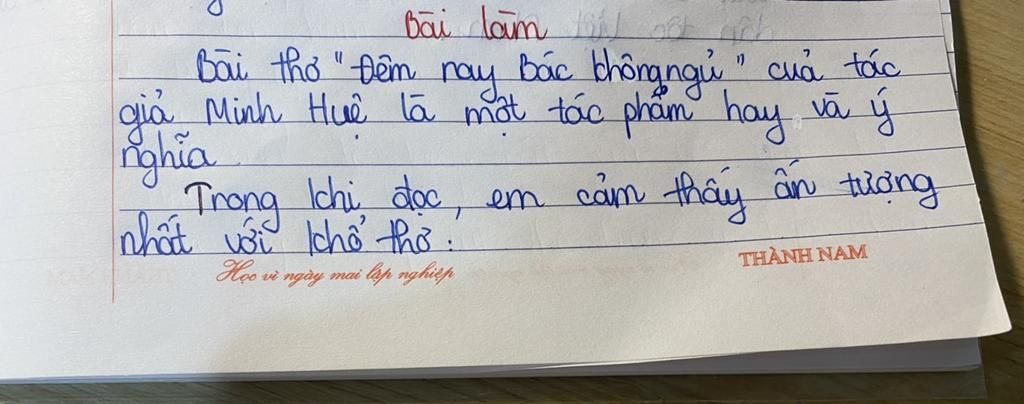 Bài làm
Bài thơ "Đêm nay Bác không ngủ" của tác
giả Minh Huệ là một tác phẩm hay và ý
nghĩa
Trong khi đọc, em cảm thấy ấn tượng
nhất với khổ thơ:
Học vì ngày mai lập nghiệp
THÀNH NAM